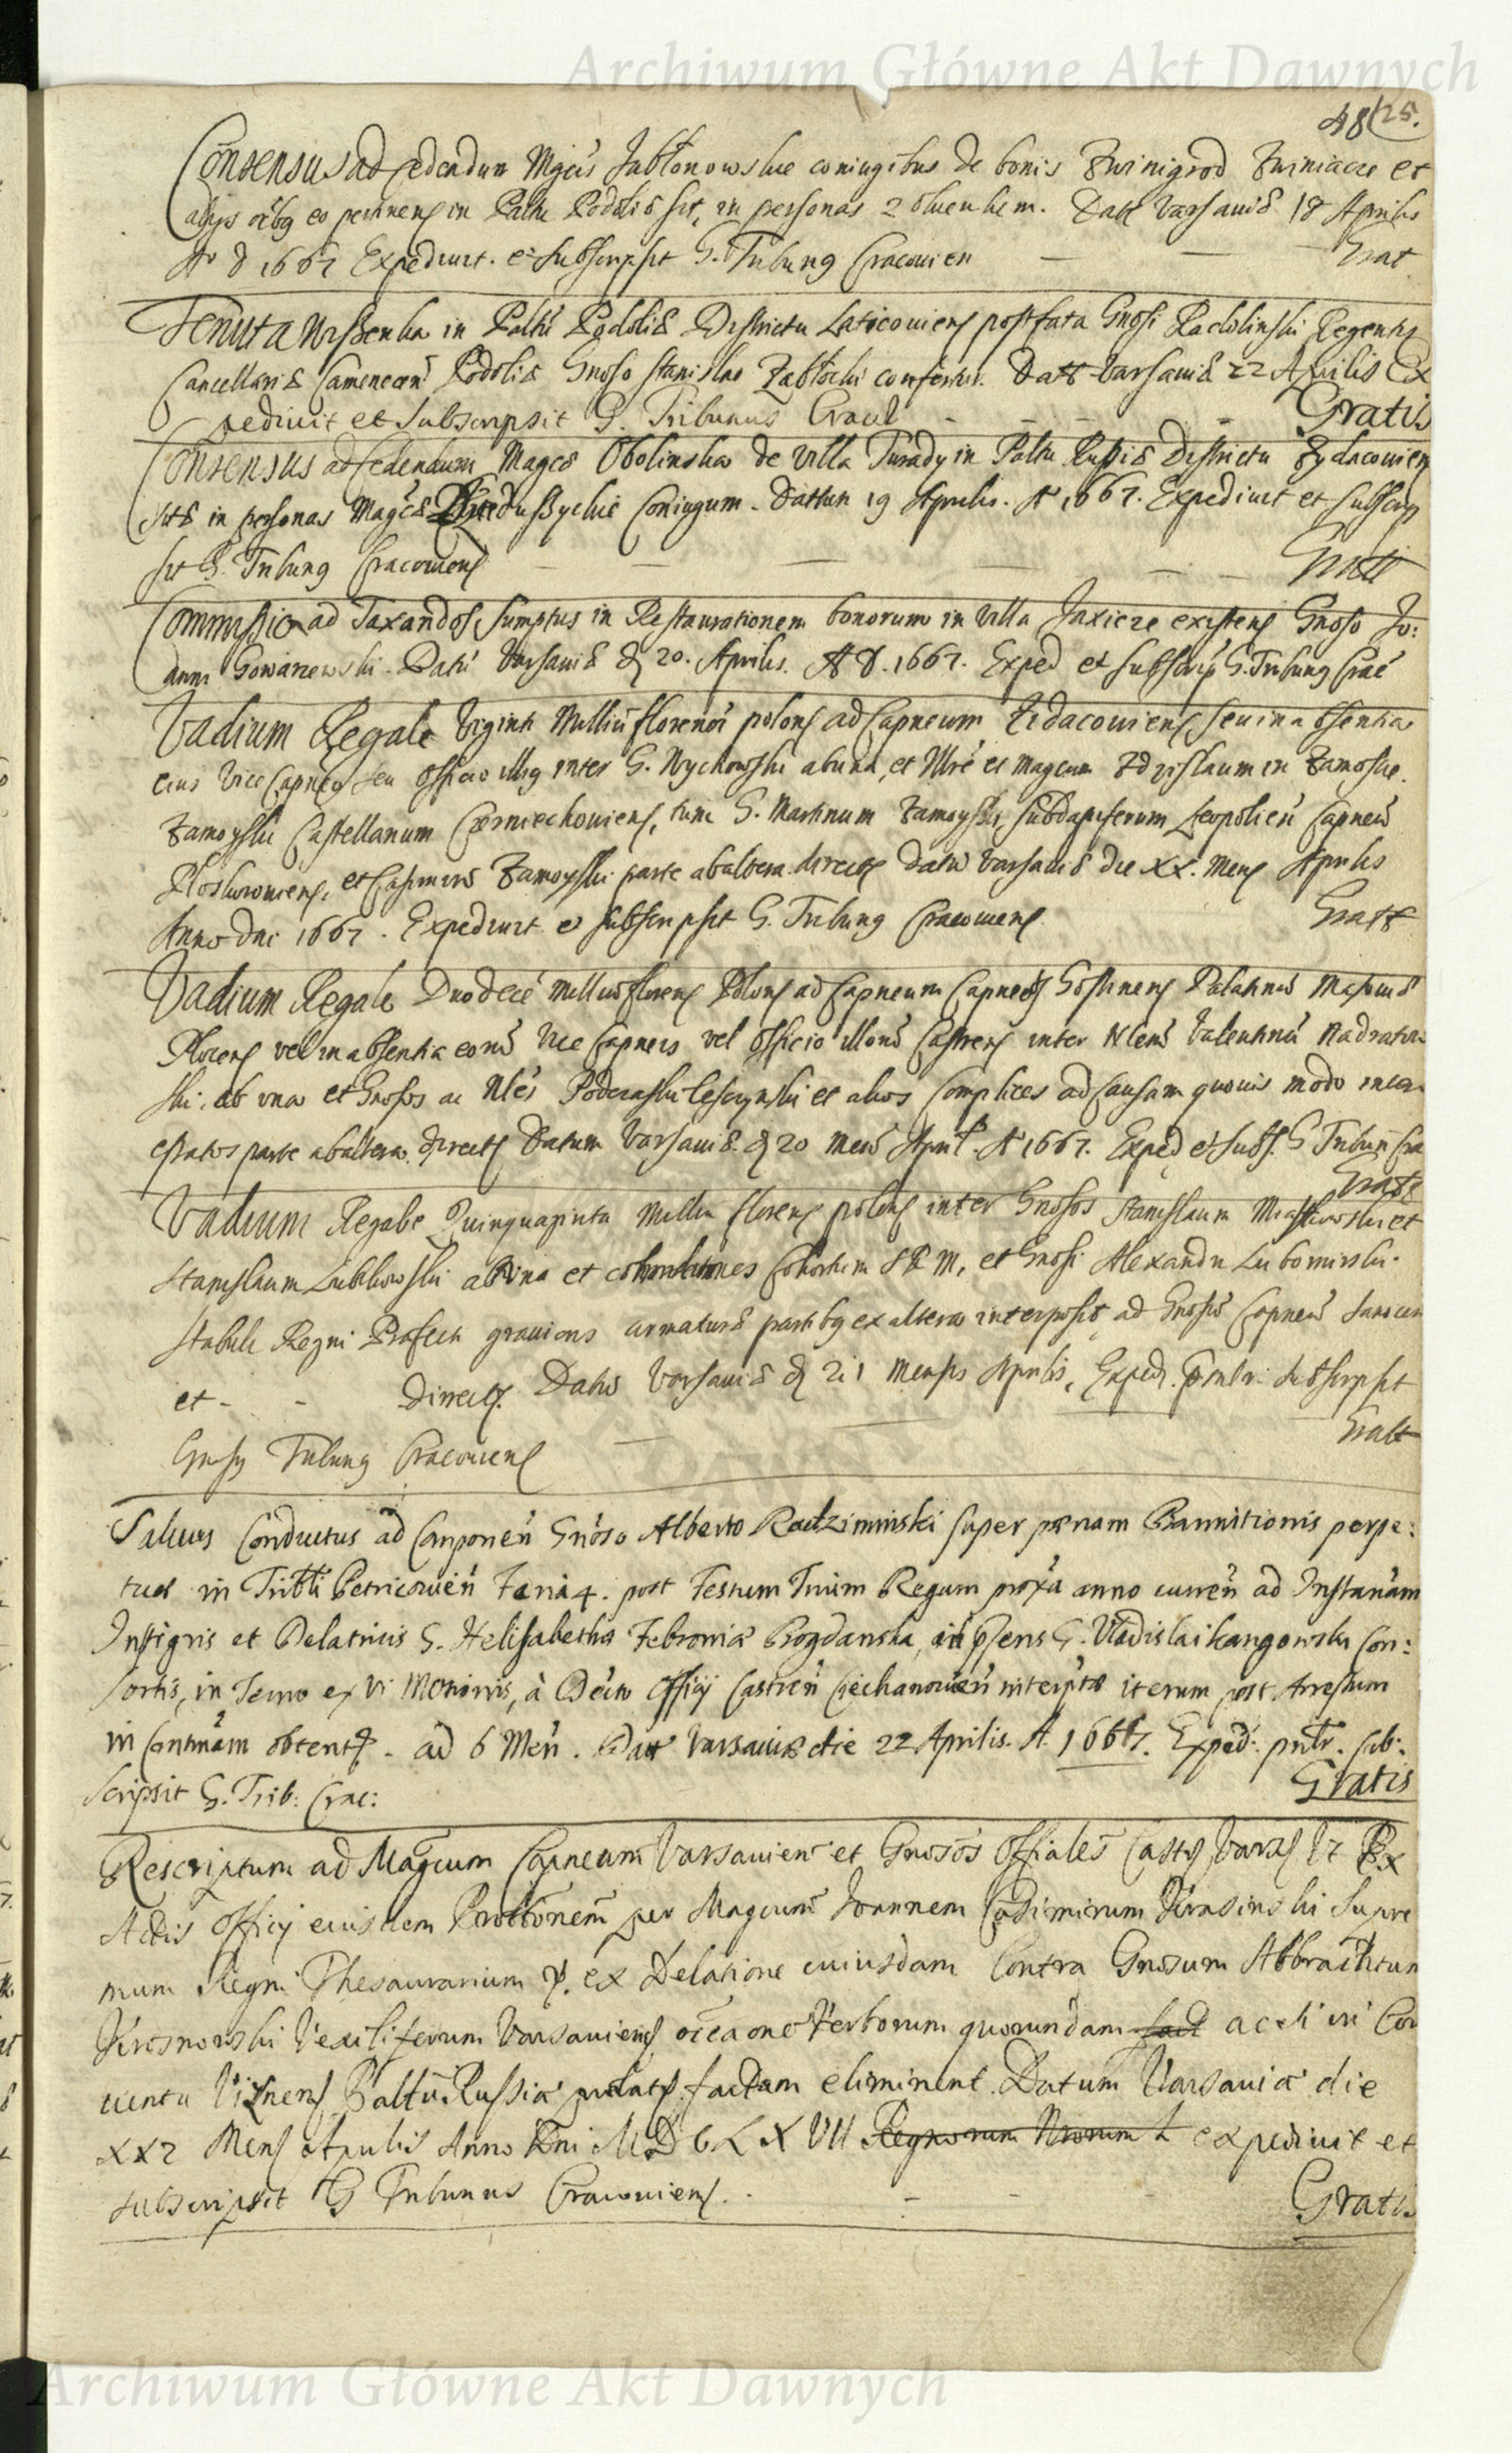 Archiwum Główne Akt Dawnych
48 25.
Consensus ad cedendum Mgcis Jabłonowskie coniugibus de bonis Zwinigrod Zwiniacze et
alijs oibg eo pertinen in Paltu Podoliæ sit, in personas Datt Varsaviæ 18 Aprilis
Ao D 1667 Expediuit. et subscripsit G. Tribung Cracovien Grat
Tenuta in Paltu Podoliæ Districtu Laticouien post fata Gnosi Radolinski Regentis
Cancellariæ Camenecen Podoliæ Gnoso Stanislao Zabłocki confertur. Datt Varsauiæ 22 Aprilis Ex
pediuit et Subscripsit G. Tribunus Cracou Gratis
Consensus ad Cedendum Magcæ Obolinska de Villa Turady in Paltu Russiæ Districtu Zydaczouien
sitæ in personas Magcæ Coniugum. Dattum 19 Aprilis. A 1667. Expediuit et subscrip
sit G. Tribung Cracouien Gratt
Commissio ad Taxandos Sumptus in Restaurationem bonorum in Villa Jaxice existen Gnoso Jo:
anni Gowarzewski. Datu Varsauiæ D 20. Aprilis. A D. 1667. Exped et subscrip G. Tribung Crac
Vadium Regale Viginti Milliu florenor polon ad Capneum Zidaczouien, seu in absentia
eius Vice Capneo seu officio illig inter G. Wychowski ab una, et Illre et Magcum Zdzislaum in Zamoscie
Zamoyski Castellanum Czerniechouien, tum G. Martinum Zamoyski, subdapiferum Leopolien Capneu
Ploskirouien, et Casimiru Zamoyski parte ab altera. direct Datu Varsauiæ die XX. Men Aprilis
Anno dni 1667. Expediuit et subscripsit G. Tribung Cracouien Gratt
Vadium Regale Duodeci milliu floren Polon ad Capneum Capneos Gostinen Palatinus Masouiæ
Plocen vel in absentia eoru Vice Capneis vel officio illoru Castren inter Nlem Valentinu Nadratow
ski, ab una et Gnosos ac Nles Podczaski Lesczynski et alios Complices ad Causam quouis modo inter
estatos parte ab altera. direct Datum Varsauiæ. D 20 Men April. A 1667. Exped et subs. G Tribun Cra
Gratt
Vadium Regale Quinquaginta Milliu floren polon inter Gnosos Stanislaum et
Stanislaum Lubkowski ab una et Cohortem S R M, et Gnosi Alexandri Lubomirski
Stabuli Regni Præfecti grauioris armaturæ partibg ex altera interposit ad Gnosu Capneu Sanocen
et - - Direct. Datu Varsauiæ D 21 Mensis Aprilis, Exped. pntr. subscripsit
Gnosg Tribung Cracouien Gratt
Saluus Conductus ad Componen Gnoso Alberto Radziminski super pœnam Bannitionis perpe:
tuæ in Tribli Petricouien Feria 4. post Festum Trium Regum proxa anno curren ad Instanam
Instigris et Delatricis G. Helisabetha Febronia Bogdanska, G. Vladislai Kangowski Con:
sortis, in Termo ex vi Motionis, à Decto officij Castren Ciechanouien interpta iterum post Arrestum
in Continam obtent. ad 6 Men. Datt Varsauiæ die 22 Aprilis. A. 1667. Exped: pntr. sub:
scripsit G. Trib: Crac: Gratis
Rescriptum ad Magcum Capneum Varsauien et Gnosos Offiales Castr Vars Vt Ex
Actis officij eiusdem Prottonem per Magcum Joannem Casimirum Krasinski Supre
mum Regni Thesaurarium ex Delatione cuiusdam Contra Gnosum Abbrahamum
Krosnowski Vexiliferum Varsauien occaone Verborum quorundam acti in Con
uentu Visnen Paltu Russiæ prolat. factam eliminent. Datum Varsauiæ die
XX2 Mens Aprilis Anno Dni MDCLXVII Regnorum Nrorum expediuit et
subscripsit G Tribunus Cracouien. Gratis
Archiwum Główne Akt Dawnych